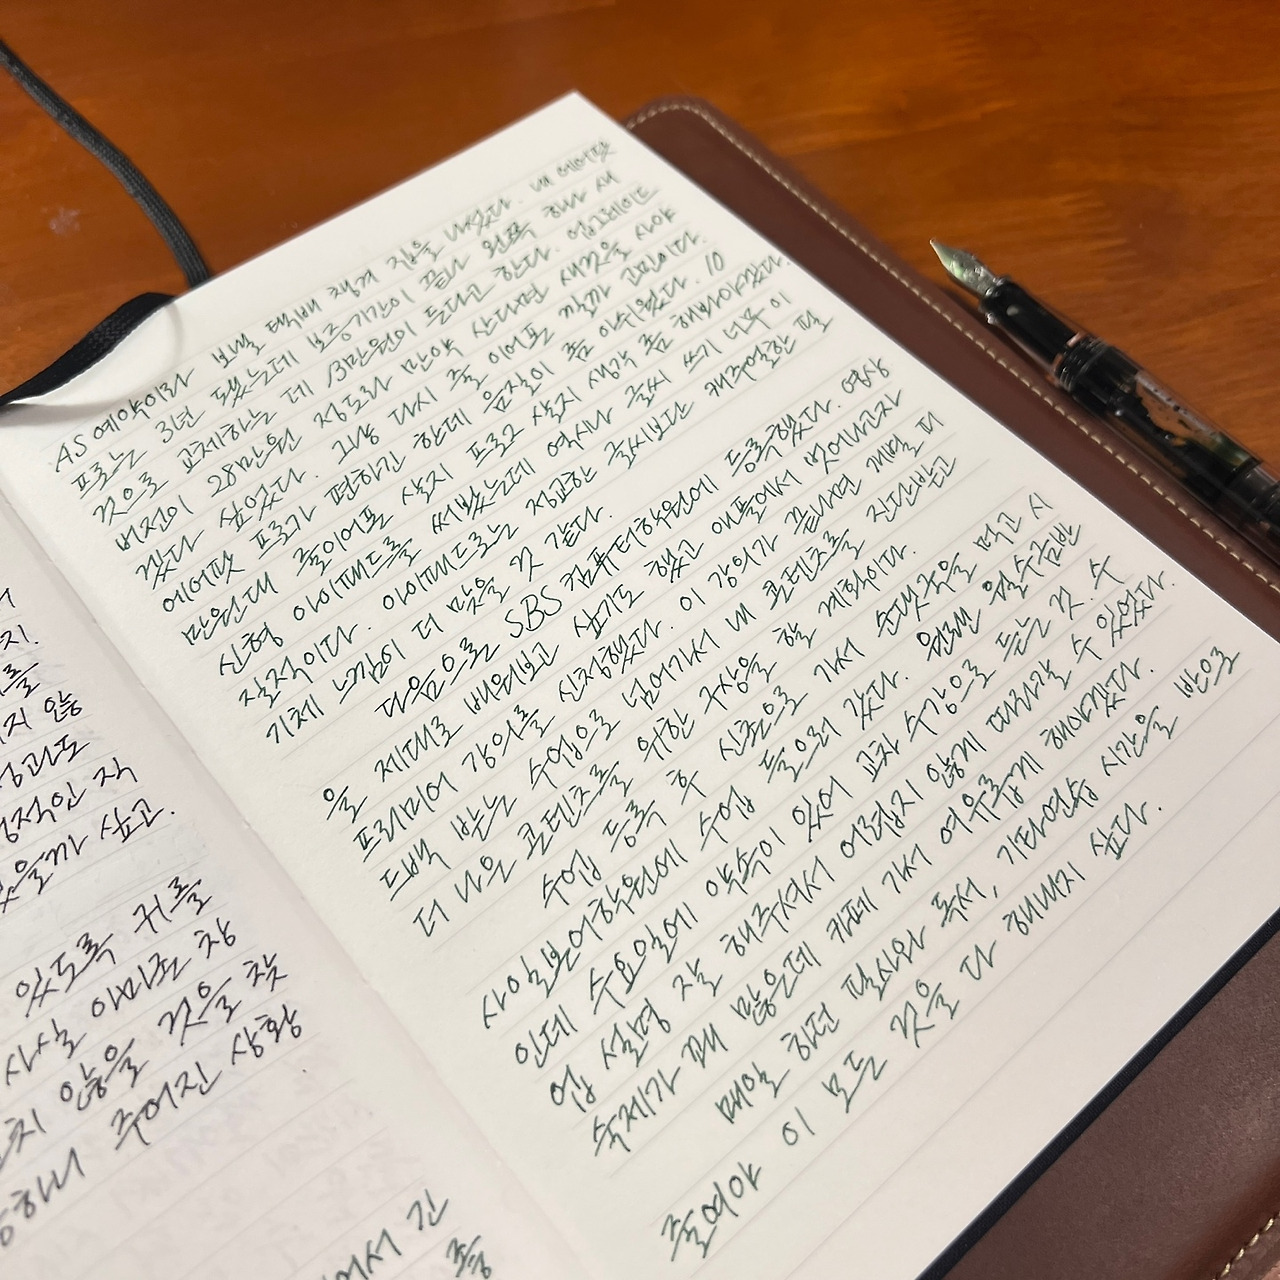 지.
를
지 않
성과도
정적인 직
있을까 싶고.
있도록 귀를
사실 이미준 참
않을 것을 찾
하니 주어진 상황
어서 긴
AS 예약이라 보낼 택배 챙겨 짐을 나섰다. 내 에어팟
프로는 3년 됐는데 보증기간이 끝나 왼쪽 하나 새
것으로 교체하는 데 13만원이 든다고 한다. 업그레이드
버전이 28만원 정도라 만약 산다면 새것을 사야
겠다 싶었다. 그냥 다시 줄 이어폰 쓸까 고민이다.
에어팟 프로가 편하긴 한데 음질이 좀 아쉬웠다. 10
만원대 줄이어폰 살지 프로2 살지 생각 좀 해봐야겠다.
신형 아이패드를 써봤는데 역시나 글씨 쓰기 너무 이
질적이다. 아이패드로는 정교한 글씨보다 캐주얼한 필
기체 느낌이 더 맞을 것 같다.
다음으로 SBS 컴퓨터학원에 등록했다. 영상
을 제대로 배워보고 싶기도 했고 어플에서 벗어나고자
프리미어 강의를 신청했다. 이 강의가 끝나면 개별 피
드백 받는 수업으로 넘어가서 내 콘텐츠를 진단받고
더 나은 콘텐츠를 위한 구상을 할 계획이다.
수업 등록 후 신촌으로 가서 순댓국을 먹고 시
사일본어학원에 수업 들으러 갔다. 원래 월수금반
인데 수요일에 약속이 있어 교차 수강으로 듣는 것. 수
업 설명 잘 해주셔서 어렵지 않게 따라갈 수 있었다.
숙제가 꽤 많은데 카페 가서 여유롭게 해야겠다.
매일 하던 필사와 독서, 기타연습 시간을 반으로
줄여야 이 모든 것을 다 해내지 싶다.